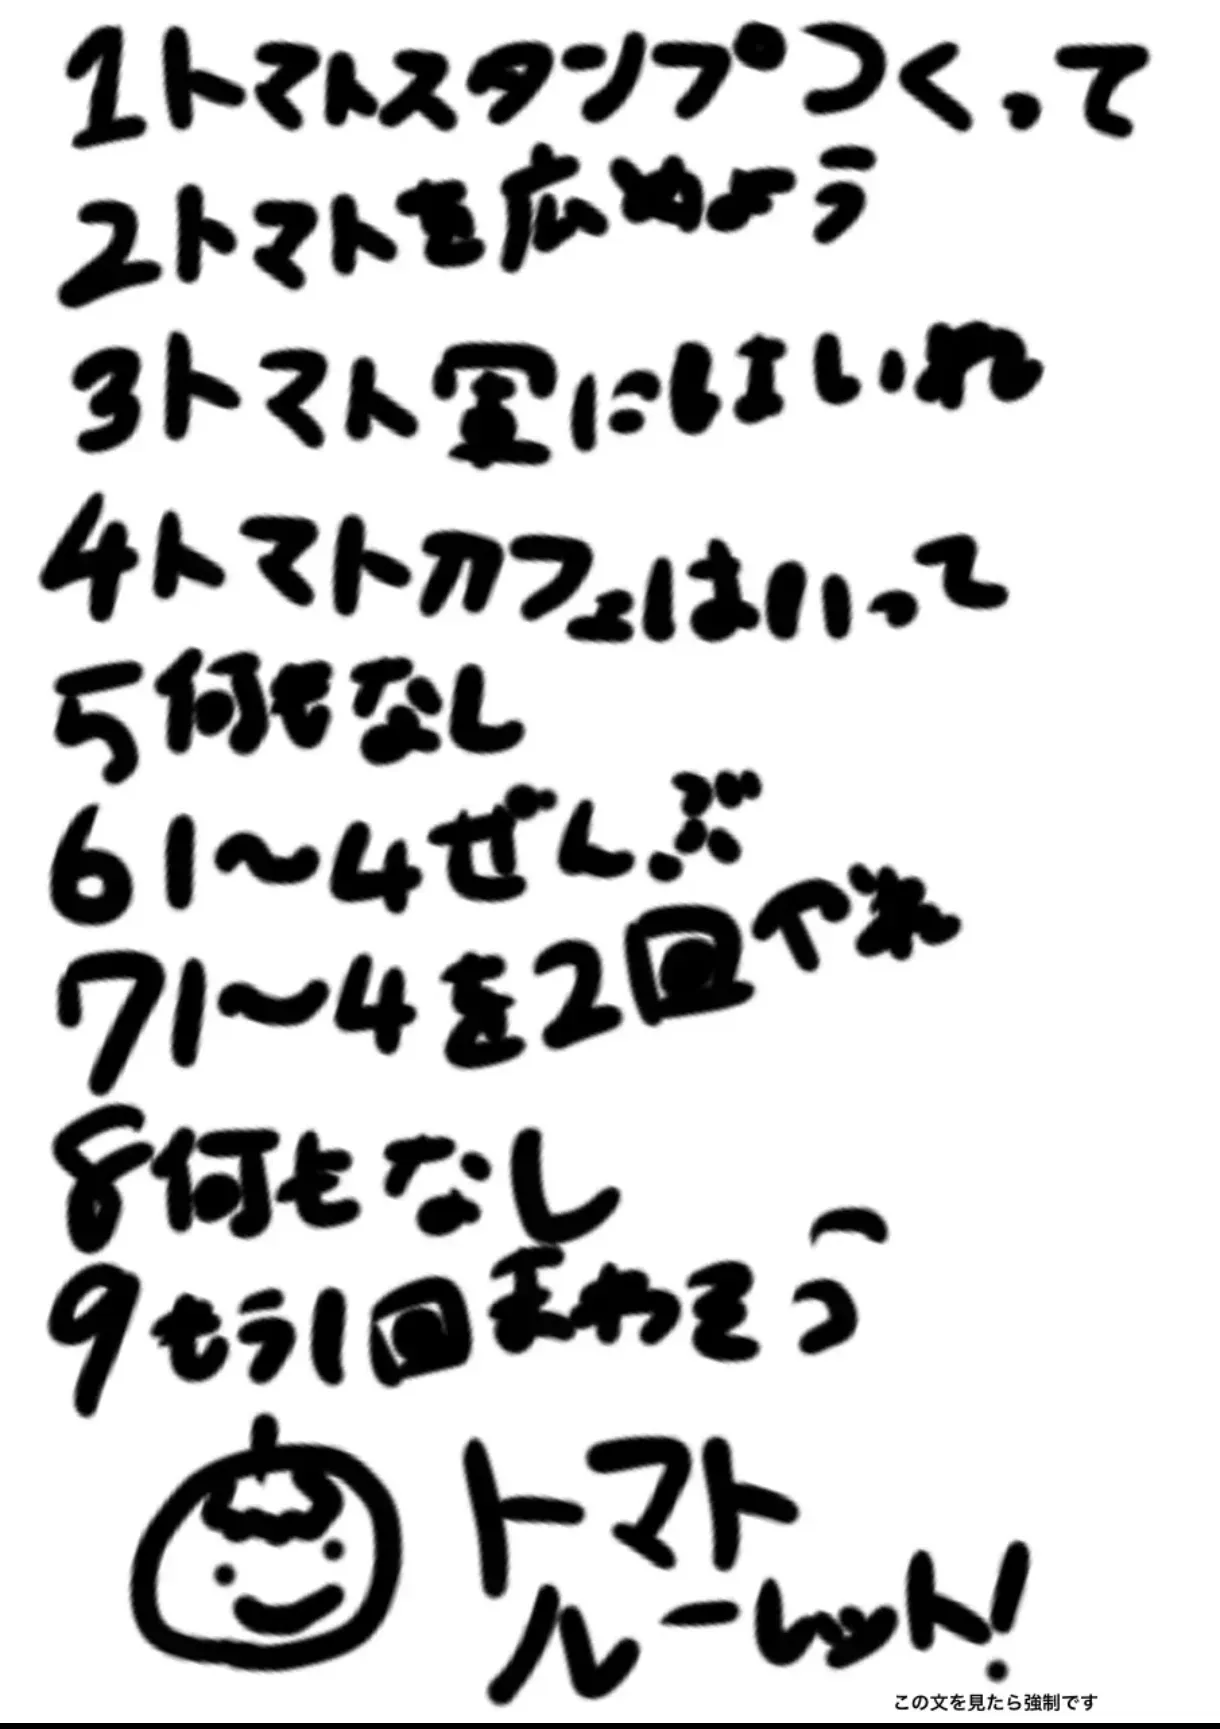 1トマトスタンプつくって
2トマトを広めよう
3トマト軍にはいれ
4トマトカフェはいって
5何もなし
6 1～4ぜんぶ
7 1～4を2回やれ
8何もなし
9もう1回まわそう
トマト
ルーレット!
この文を見たら強制です